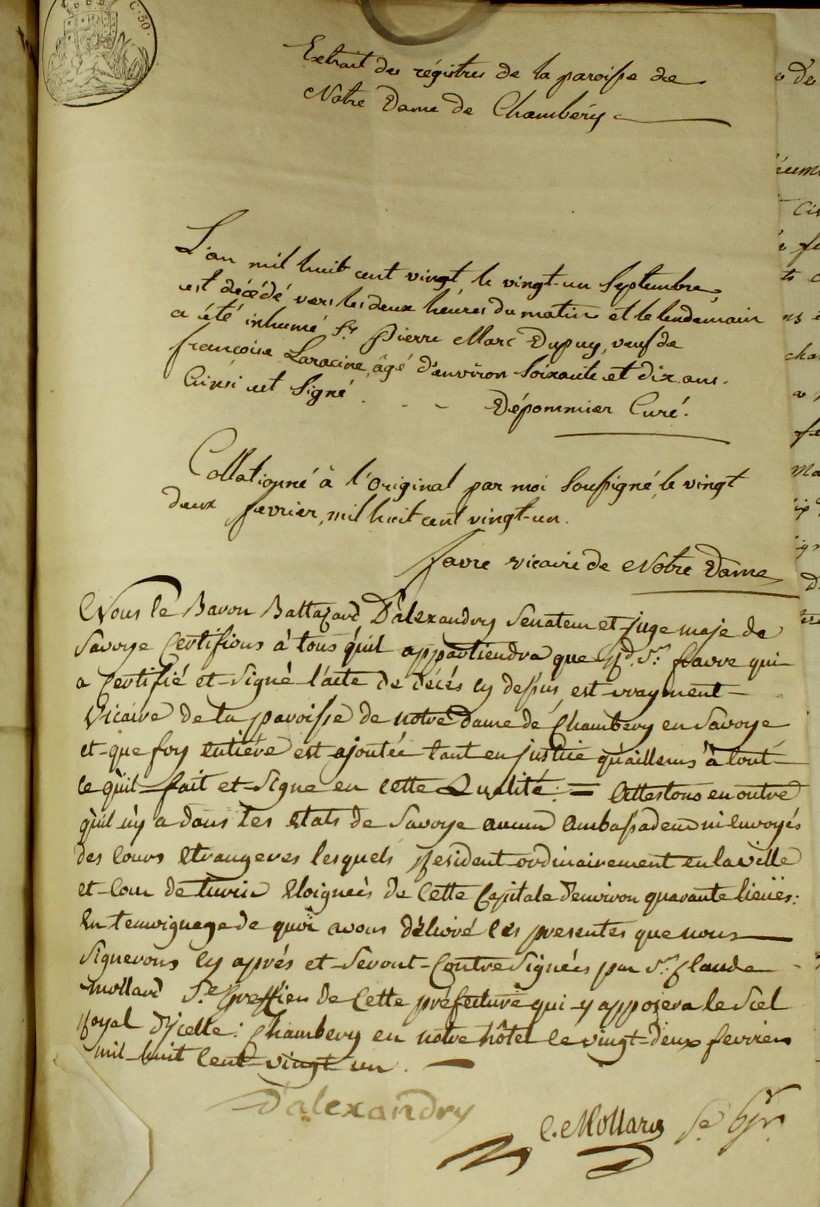 C. 50.
Extrait des régistres de la paroisse de
Notre Dame de Chambéry
L'an mil huit cent vingt le vingt-un Septembre,
est décédé vers les deux heures du matin et le lendemain
a été inhumé Sr. Pierre Marc Dupuy, veuf de
françoise Laracine, âgé d'environ Soixante et dix ans.
Ainsi est Signé - - Dépommier Curé.
Collationné à l'Original par moi Soussigné, le vingt
deux fevrier, mil huit cent vingt-un.
favre vicaire de Notre Dame
Nous le Baron Baltazard D'alexandry Senateur et juge maje de
Savoye Certifions à tous qu'il appartiendra que Rd. Sr. favre qui
a Certifié et Signé l'acte de décés cy dessus est vrayment
Vicaire de la paroisse de notre dame de Chambery en Savoye
et que foy entiere est ajoutée tant en justice qu'ailleurs à tout
ce qu'il fait et Signe en cette Qualité: = Attestons en outre
qu'il n'y a dans les etats de Savoye aucun ambassadeur ni envoyés
des cours etrangeres lesquels resident ordinairement en la ville
et cour de turin Eloignées de Cette Capitale d'environ quarante lieües:
En temoignage de quoi avons délivré les presentes que nous
Signerons cy aprés et Seront Contre Signées par Sr. Claude
Mollard Se. Greffier de Cette préfecture qui y apposera le Scel
Royal d'ycelle: Chambery en notre hôtel le vingt-deux fevrier
mil huit cent vingt un.
D'alexandry
C. Mollard